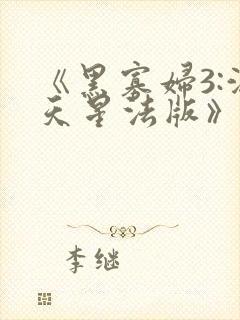 《黑寡婦3:
天星法版》
李继